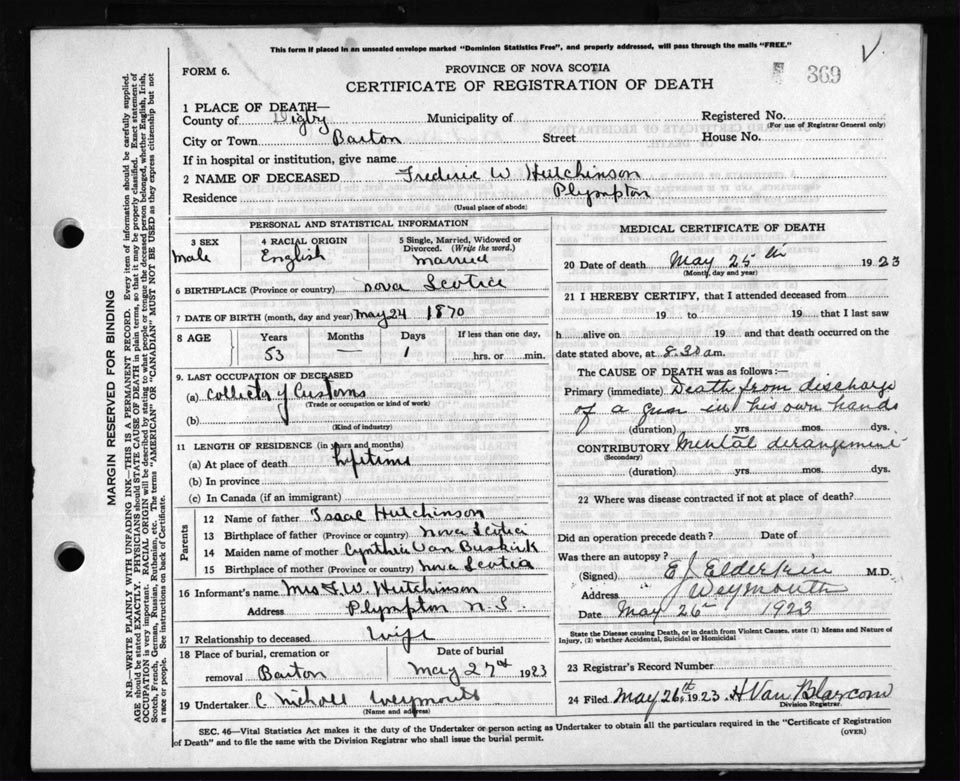 This form if placed in an unsealed envelope marked "Dominion Statistics Free", and properly addressed, will pass through the mails "FREE."
V
FORM 6.
PROVINCE OF NOVA SCOTIA
369
CERTIFICATE OF REGISTRATION OF DEATH
1 PLACE OF DEATH—
County of Digby Municipality of Registered No.
(For use of Registrar General only)
City or Town Barton Street House No.
If in hospital or institution, give name
2 NAME OF DECEASED Frederic W Hutchinson
Residence Plympton
(Usual place of abode)
PERSONAL AND STATISTICAL INFORMATION
3 SEX 4 RACIAL ORIGIN 5 Single, Married, Widowed or Divorced. (Write the word.)
Male English Married
6 BIRTHPLACE (Province or country) Nova Scotia
7 DATE OF BIRTH (month, day and year) May 24 1870
8 AGE Years Months Days If less than one day,
53 — 1 hrs. or min.
9. LAST OCCUPATION OF DECEASED
(a) Collector of Customs
(Trade or occupation or kind of work)
(b)
(Kind of industry)
11 LENGTH OF RESIDENCE (in years and months)
(a) At place of death Lifetime
(b) In province
(c) In Canada (if an immigrant)
Parents
12 Name of father Isaac Hutchinson
13 Birthplace of father (Province or country) Nova Scotia
14 Maiden name of mother Cynthia Van Buskirk
15 Birthplace of mother (Province or country) Nova Scotia
16 Informant's name Mrs F. W. Hutchinson
Address Plympton N.S.
17 Relationship to deceased Wife
18 Place of burial, cremation or removal Date of burial
Barton May 27th 1923
19 Undertaker C Nichols Weymouth
(Name and address)
MEDICAL CERTIFICATE OF DEATH
20 Date of death May 25th 1923
(Month, day and year)
21 I HEREBY CERTIFY, that I attended deceased from
19 to 19 that I last saw
h alive on 19 and that death occurred on
date stated above, at 8.30 a.m.
The CAUSE OF DEATH was as follows:—
Primary (immediate) Death from discharge
of a gun in his own hands
(duration) yrs. mos. dys.
CONTRIBUTORY Mental derangement
(Secondary)
(duration) yrs. mos. dys.
22 Where was disease contracted if not at place of death?
Did an operation precede death? Date of
Was there an autopsy?
(Signed) E J Elderkin M.D.
Address " Weymouth
Date May 26th 1923
State the Disease causing Death, or in death from Violent Causes, state (1) Means and Nature of Injury, (2) whether Accidental, Suicidal or Homicidal
23 Registrar's Record Number
24 Filed May 26th, 1923 H Van Blarcom
Division Registrar.
SEC. 46—Vital Statistics Act makes it the duty of the Undertaker or person acting as Undertaker to obtain all the particulars required in the "Certificate of Registration
of Death" and to file the same with the Division Registrar who shall issue the burial permit. (OVER)
MARGIN RESERVED FOR BINDING
N.B.—WRITE PLAINLY WITH UNFADING INK—THIS IS A PERMANENT RECORD. Every item of information should be carefully supplied.
AGE should be stated EXACTLY. PHYSICIANS should STATE CAUSE OF DEATH in plain terms, so that it may be properly classified. Exact statement of
OCCUPATION is very important. RACIAL ORIGIN will be described by stating to what people or tongue the deceased person belonged, whether English, Irish,
Scotch, French, German, Russian, Ruthenian, etc. The terms "AMERICAN" OR "CANADIAN" MUST NOT BE USED as they express citizenship but not
a race or people. See instructions on back of Certificate.